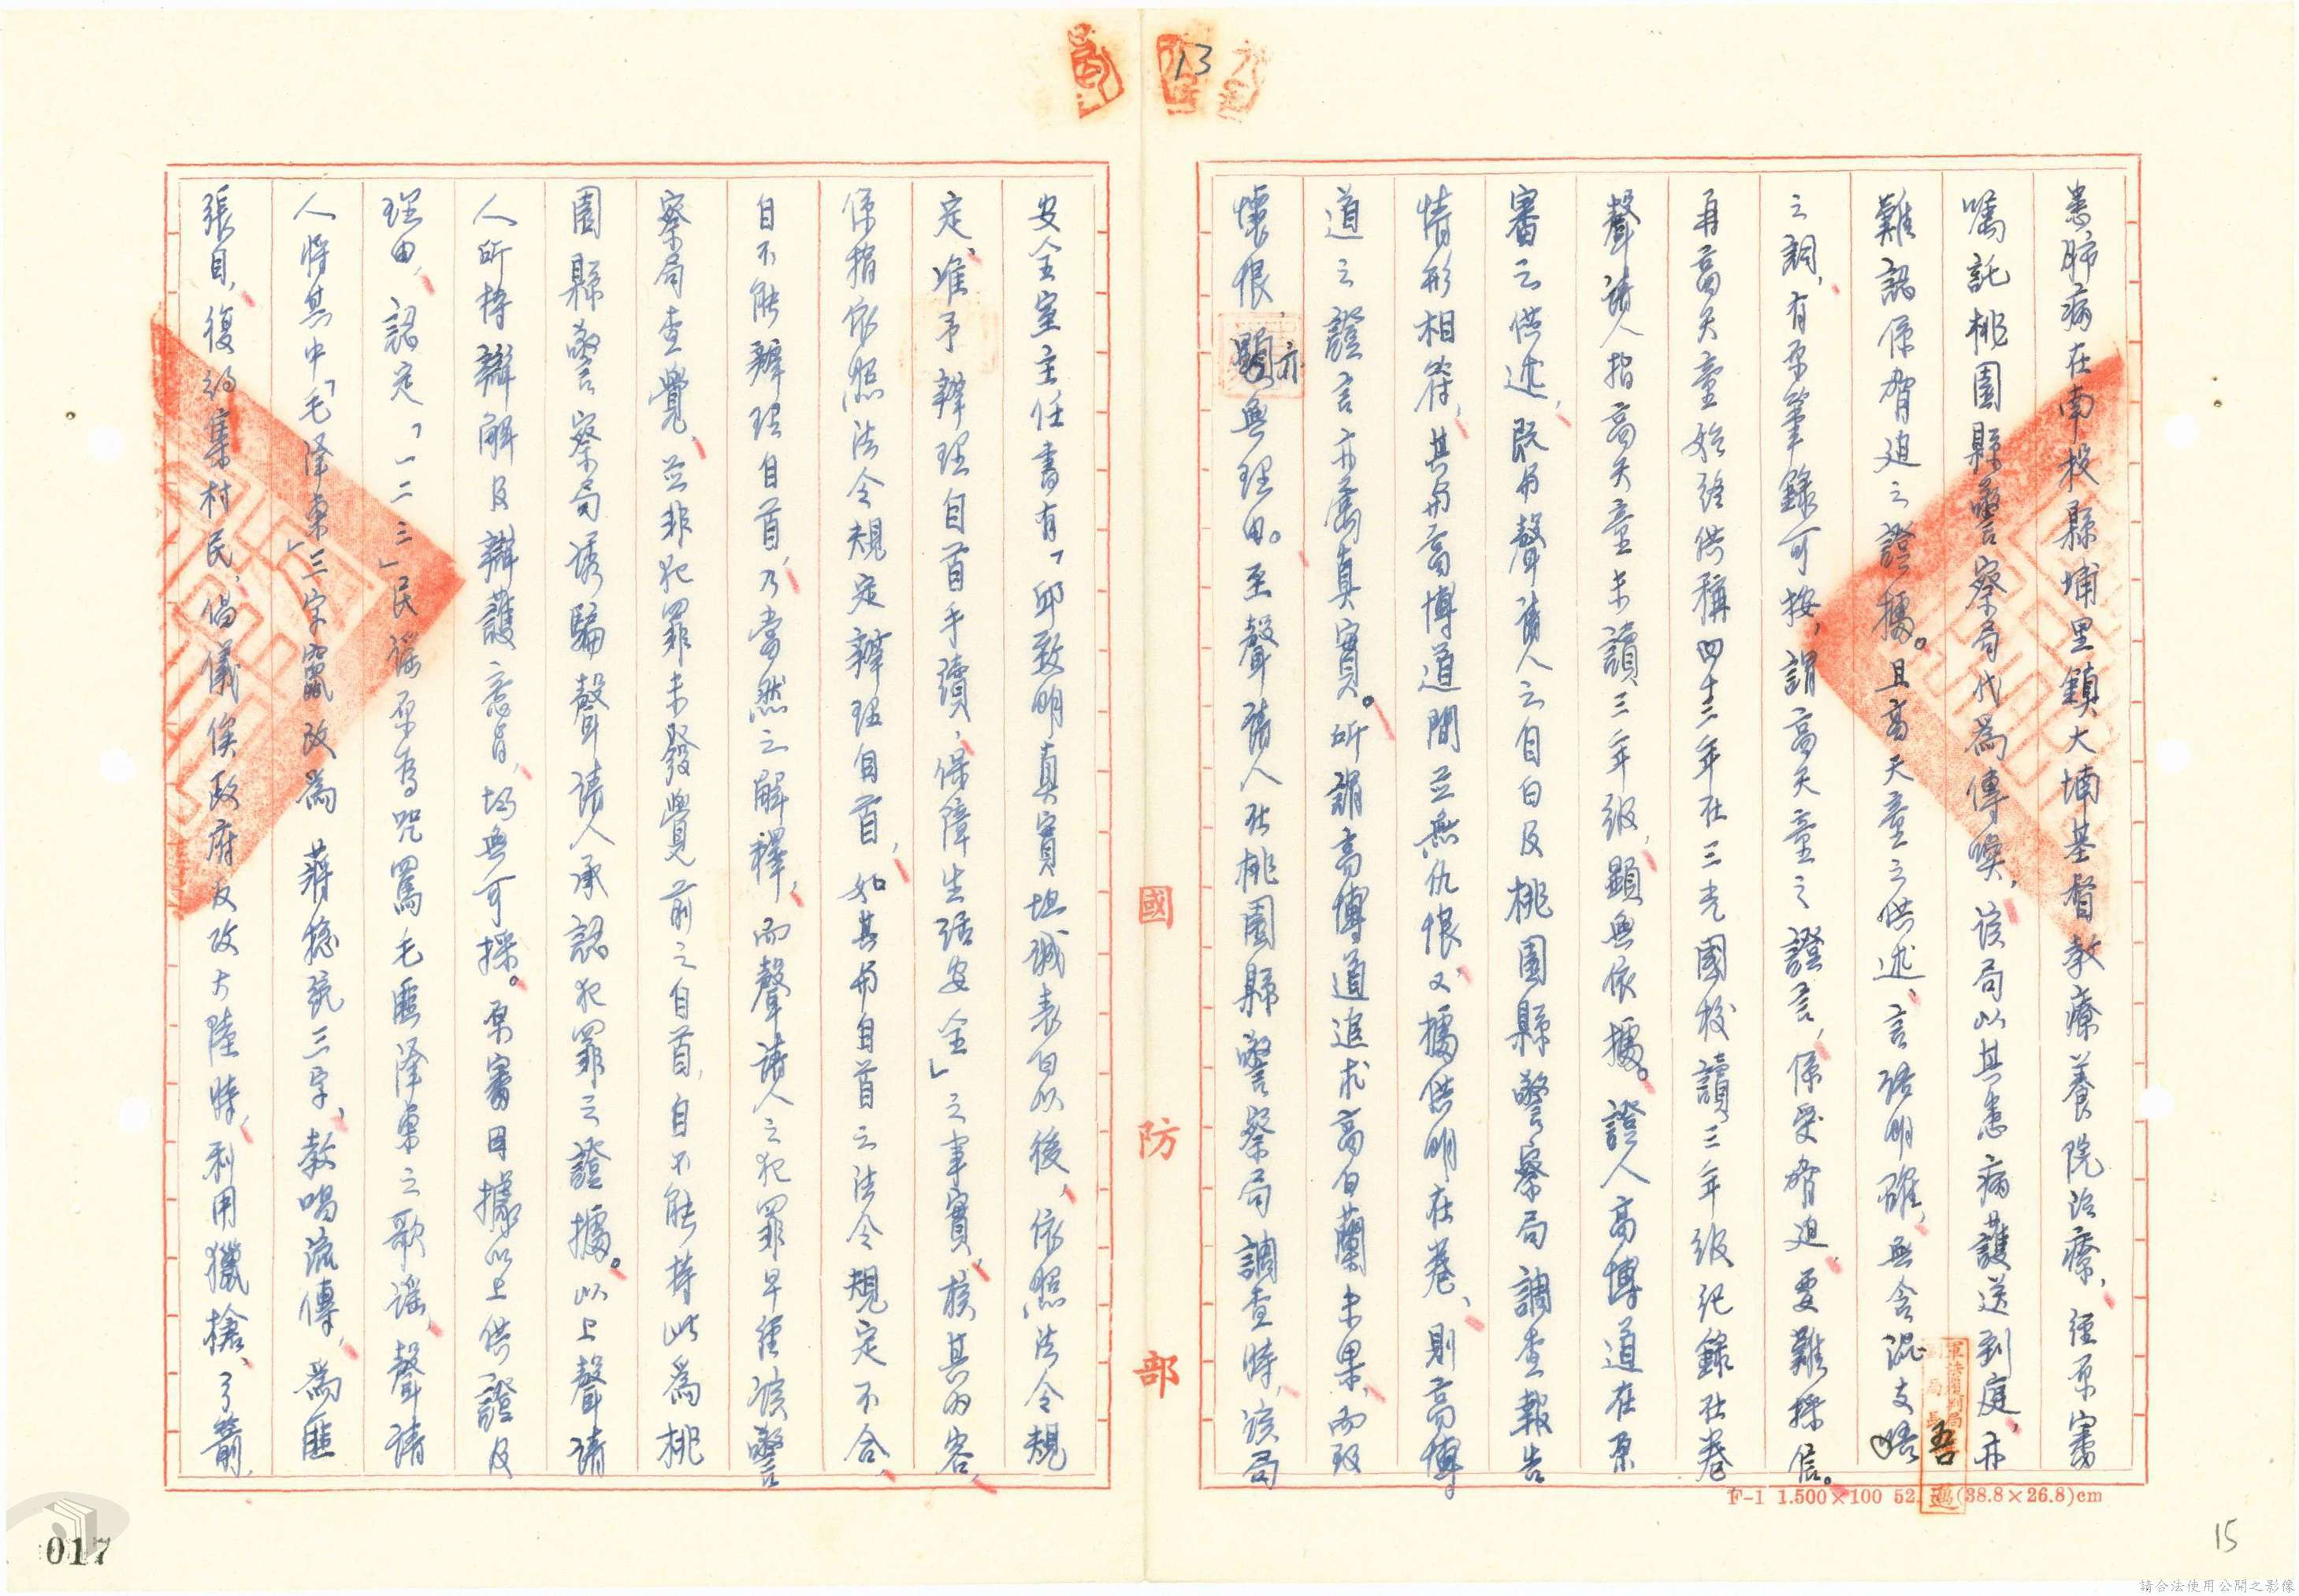 13
患肺病在南投縣埔里鎮大埔基督教療養院治療，經原審
囑託桃園縣警察局代為傳喚，該局以其患病護送到庭，亦
難認係脅迫之證據。且高天童之供述，言語明確，無含混支吾
之詞，有原筆錄可按，謂高天童之證言，係受脅迫，要難採信。
再高天童始終供稱四十二年在三光國校讀三年級紀錄在卷
聲請人指高天童未讀三年級，顯無依據。證人高博道在原
審之供述，既與聲請人之自白及桃園縣警察局調查報告
情形相符，其與高博道間並無仇恨，又據供明在卷，則高博
道之證言亦屬真實。所謂高博道追求高白蘭未果，而致
懷恨，亦無理由。至聲請人在桃園縣警察局調查時，該局
國防部
安全室主任書有「邱致明真實坦誠表白以後，依照法令規
定，准予辦理自首手續，保障生活安全」之事實，核其內容，
係指依照法令規定辦理自首，如其與自首之法令規定不合，
自不能辦理自首，乃當然之解釋，而聲請人之犯罪早經該警
察局查覺，並非犯罪未發覺前之自首，自不能持此為桃
園縣警察局誘騙聲請人承認犯罪之證據。以上聲請
人所持辯解及辯護意旨，均無可採。原審因據以上供證及
理由，認定「一二三」民謠原為咒罵毛匪澤東之歌謠，聲請
人將其中「毛澤東」三字竄改為 蔣總統三字，教唱流傳，為匪
張目，復糾集村民，倡儀俟政府反攻大陸時，利用獵槍、弓箭，
F-1 1.500×100 52. (38.8×26.8)cm
15
017
請合法使用公開之影像